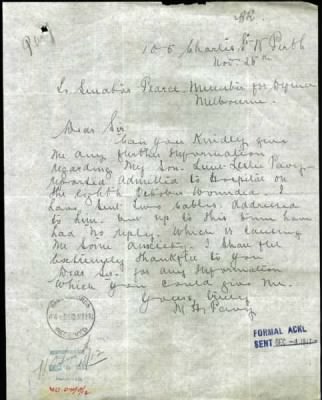 105 Charles St N Perth
Nov. 28th
To Senator Pearce Minister for Defence
Melbourne
Dear Sir
Can you Kindly give
me any further information
regarding My Son. Lieut Leslie Pavy
reported admitted to Hospital on
the eighth October Wounded. I
have sent two cables addressed
to him. but up to this time have
had no reply. Which is causing
me some anxiety. I shall feel
extremely thankful to you
Dear Sir. for any information
Which you could give me.
Yours truly
M H Pavy
RECEIVED
FORMAL ACKL
SENT DEC -4 1917